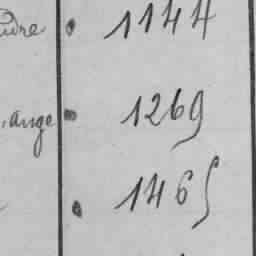 1144
ange 1269
1465